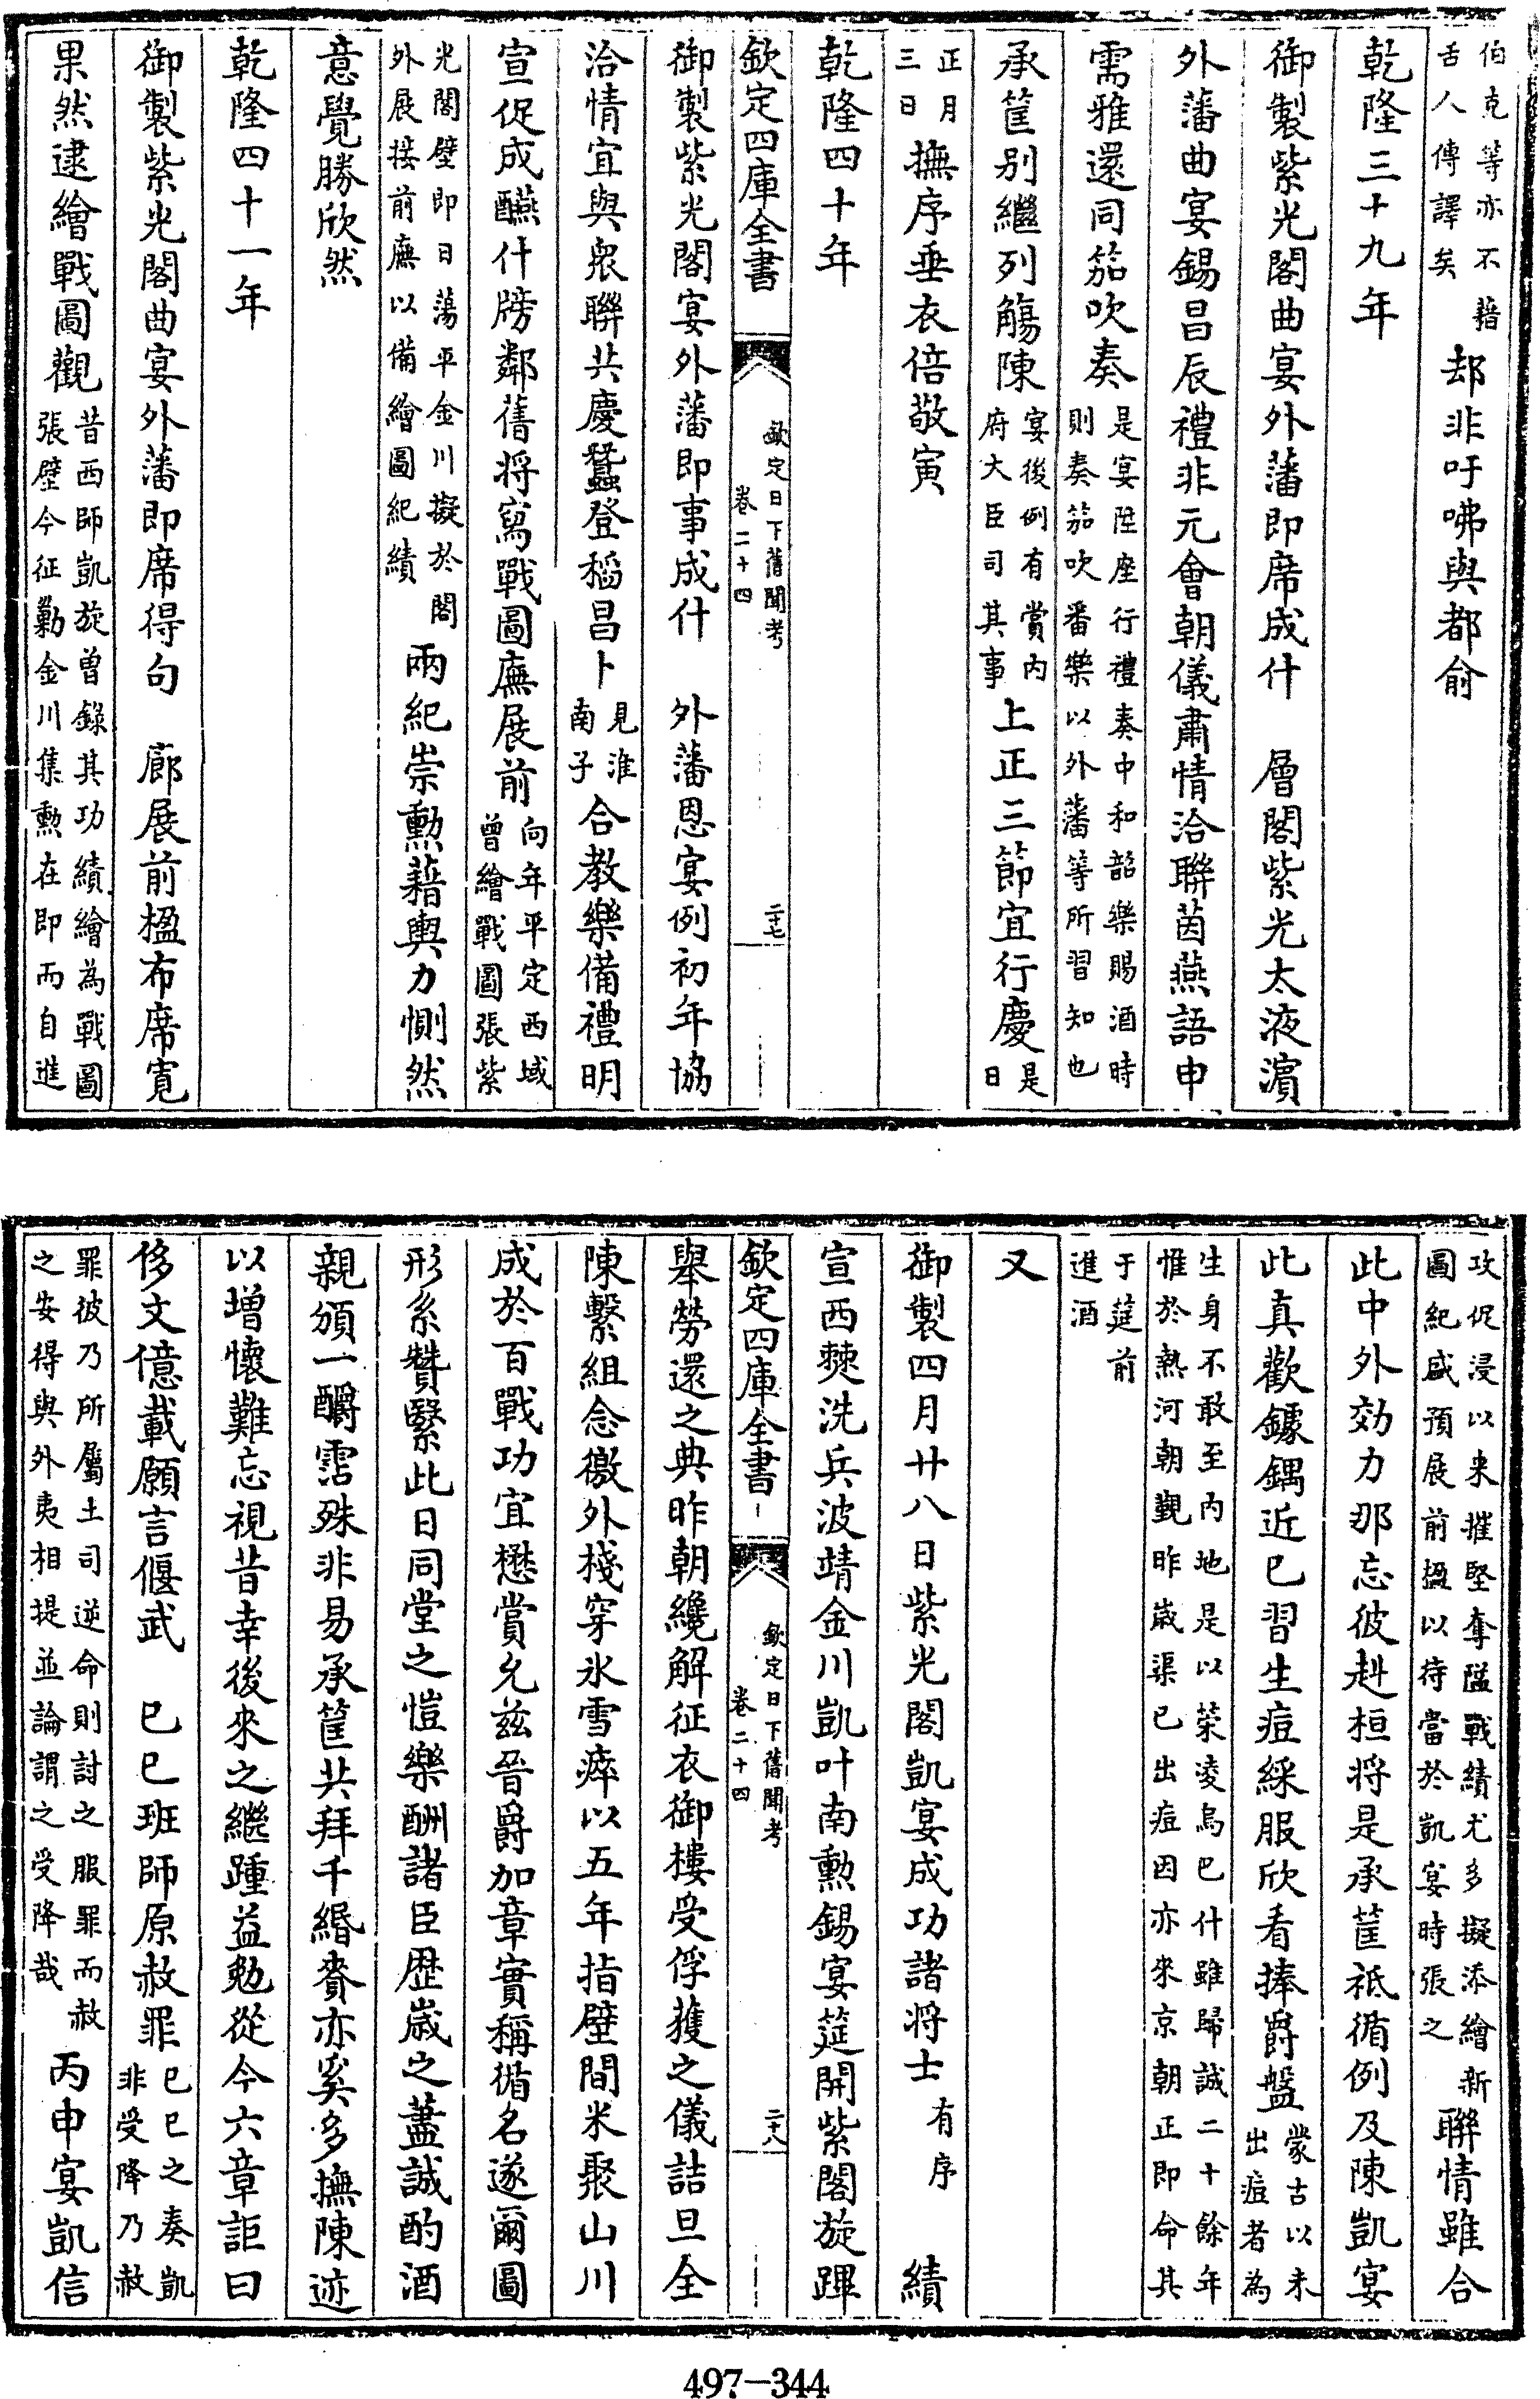 伯克等亦不藉
舌人傳譯矣
却非吁咈與都俞
乾隆三十九年
御製紫光閣曲宴外藩即席成什　層閣紫光太液濵
外藩曲宴錫昌辰禮非元會朝儀肅情洽聯茵燕語申
需雅還同笳吹奏
是宴陞座行禮奏中和韶樂賜酒時
則奏笳吹番樂以外藩等所習知也
承筐别繼列觴陳
宴後例有賞内
府大臣司其事
上正三節宜行慶
是日
正月
三日
撫序垂衣倍敬寅
乾隆四十年
欽定四庫全書
欽定日下舊聞考
卷二十四
二十七
御製紫光閣宴外藩即事成什　外藩恩宴例初年協
洽情宜與衆聯共慶蠶登稻昌卜
見淮
南子
合教樂備禮明
宣促成醼什牓鄰舊将寫戰圖廡展前
向年平定西域
曾繪戰圖張紫
光閣壁即日蕩平金川擬於閣
外展接前廡以備繪圖紀績
兩紀崇勲藉輿力惻然
意覺勝欣然
乾隆四十一年
御製紫光閣曲宴外藩即席得句　廊展前楹布席寛
果然逮繪戰圖觀
昔西師凱旋曾錄其功績繪為戰圖
張壁今征勦金川集勲在即而自進
攻促浸以来摧堅奪隘戰績尤多擬添繪新
圖紀盛預展前楹以待當於凱宴時張之
聯情雖合
此中外効力那忘彼赳桓将是承筐祗循例及陳凱宴
此真歡鐻鍝近已習生痘綵服欣看捧爵盤
蒙古以未
出痘者為
生身不敢至内地是以荣凌烏巴什雖歸誠二十餘年
惟於熱河朝覲昨嵗渠已出痘因亦來京朝正即命其
于莚前
進酒
又
御製四月廿八日紫光閣凱宴成功諸将士有序　績
宣西棘洗兵波靖金川凱叶南勲錫宴莚開紫閣旋蹕
欽定四庫全書
欽定日下舊聞考
卷二十四
二十八
舉勞還之典昨朝纔解征衣御樓受俘獲之儀詰旦全
陳繫組念徼外棧穿氷雪瘁以五年指壁間米聚山川
成於百戰功宜懋賞允兹晉爵加章實稱循名遂爾圖
形系贊緊此日同堂之愷樂酬諸臣歴嵗之藎誠酌酒
親頒一釂霑殊非易承筐共拜千緡賚亦奚多撫陳迹
以增懷難忘視昔幸後來之繼踵益勉從今六章詎曰
侈文億載願言偃武　已巳班師原赦罪
已巳之奏凱
非受降乃赦
罪彼乃所屬土司逆命則討之服罪而赦
之安得與外夷相提並論謂之受降哉
丙申宴凱信
497-344